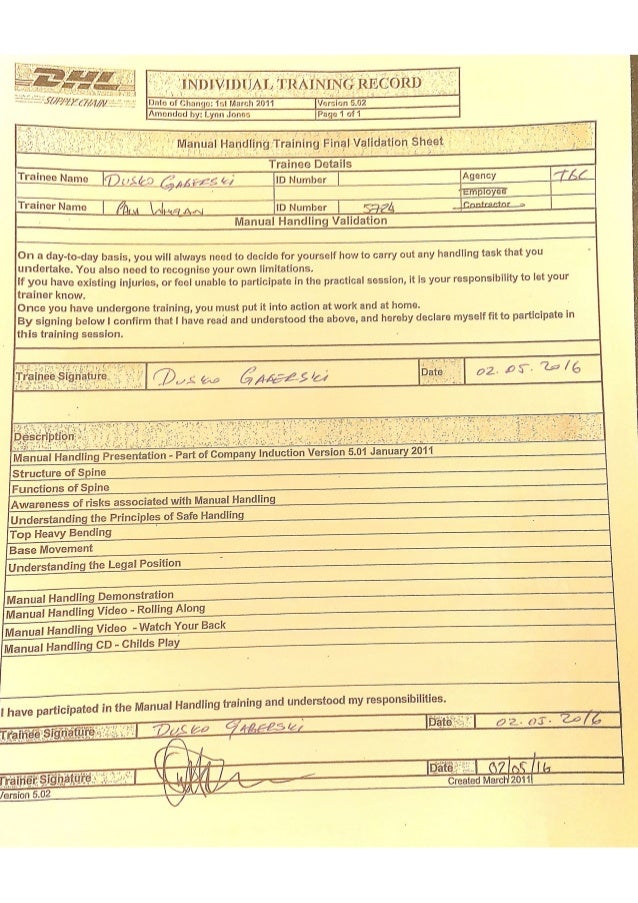 DHL
SUPPLY CHAIN
INDIVIDUAL TRAINING RECORD
Date of Change: 1st March 2011 Version 5.02
Amended by: Lynn Jones Page 1 of 1
Manual Handling Training Final Validation Sheet
Trainee Details
Trainee Name DUSKO GABERSKI ID Number Agency TBC
Employee
Trainer Name ID Number 5724 Contractor
Manual Handling Validation
On a day-to-day basis, you will always need to decide for yourself how to carry out any handling task that you
undertake. You also need to recognise your own limitations.
If you have existing injuries, or feel unable to participate in the practical session, it is your responsibility to let your
trainer know.
Once you have undergone training, you must put it into action at work and at home.
By signing below I confirm that I have read and understood the above, and hereby declare myself fit to participate in
this training session.
Trainee Signature DUSKO GABERSKI Date 02.05.2016
Description
Manual Handling Presentation - Part of Company Induction Version 5.01 January 2011
Structure of Spine
Functions of Spine
Awareness of risks associated with Manual Handling
Understanding the Principles of Safe Handling
Top Heavy Bending
Base Movement
Understanding the Legal Position
Manual Handling Demonstration
Manual Handling Video - Rolling Along
Manual Handling Video - Watch Your Back
Manual Handling CD - Childs Play
I have participated in the Manual Handling training and understood my responsibilities.
Trainee Signature DUSKO GABERSKI Date 02.05.2016
Trainer Signature Date 02/05/16
Version 5.02 Created March 2011